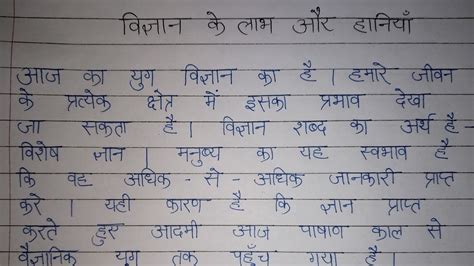 विज्ञान के लाभ और हानियाँ
आज का युग विज्ञान का है । हमारे जीवन
के प्रत्येक क्षेत्र में इसका प्रभाव देखा
जा सकता है । विज्ञान शब्द का अर्थ है -
विशेष ज्ञान । मनुष्य का यह स्वभाव है
कि वह अधिक - से - अधिक जानकारी प्राप्त
करे । यही कारण है कि ज्ञान प्राप्त
करते हुए आदमी आज पाषाण काल से
वैज्ञानिक युग तक पहुँच गया है ।